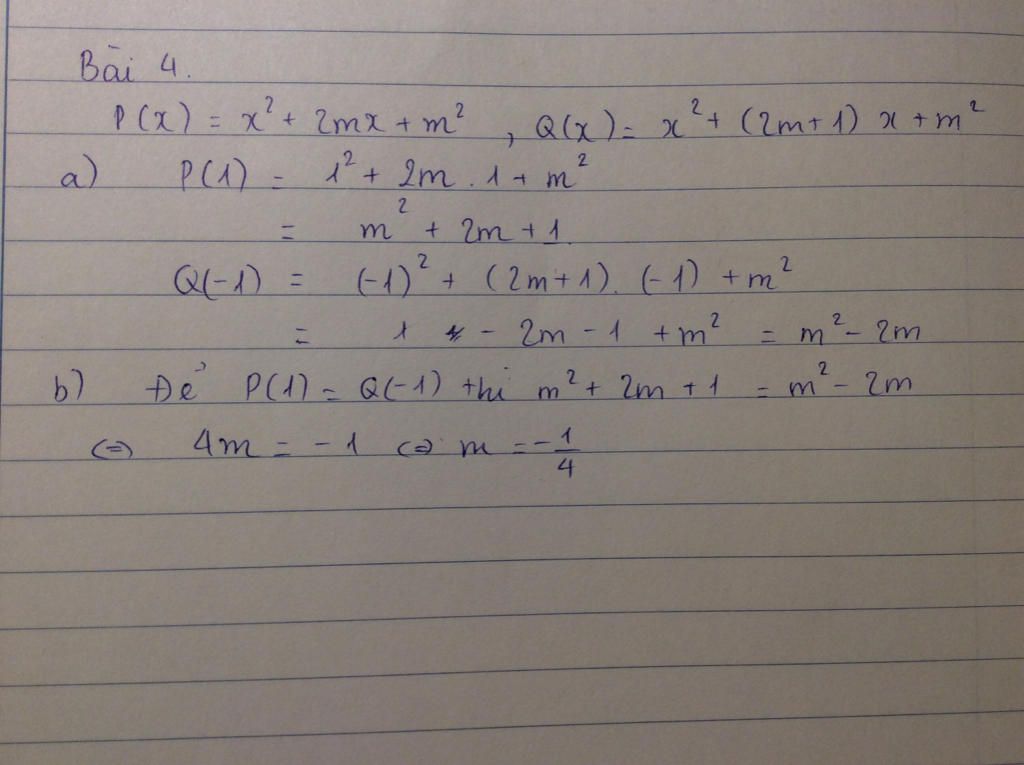 Bài 4.
P(x) = x² + 2mx + m² , Q(x) = x² + (2m+1) x + m²
a) P(1) = 1² + 2m . 1 + m²
= m² + 2m + 1.
Q(-1) = (-1)² + (2m+1). (-1) + m²
= 1 - 2m - 1 + m² = m² - 2m
b) Để P(1) = Q(-1) thì m² + 2m + 1 = m² - 2m
⇔ 4m = -1 ⇔ m = -1/4